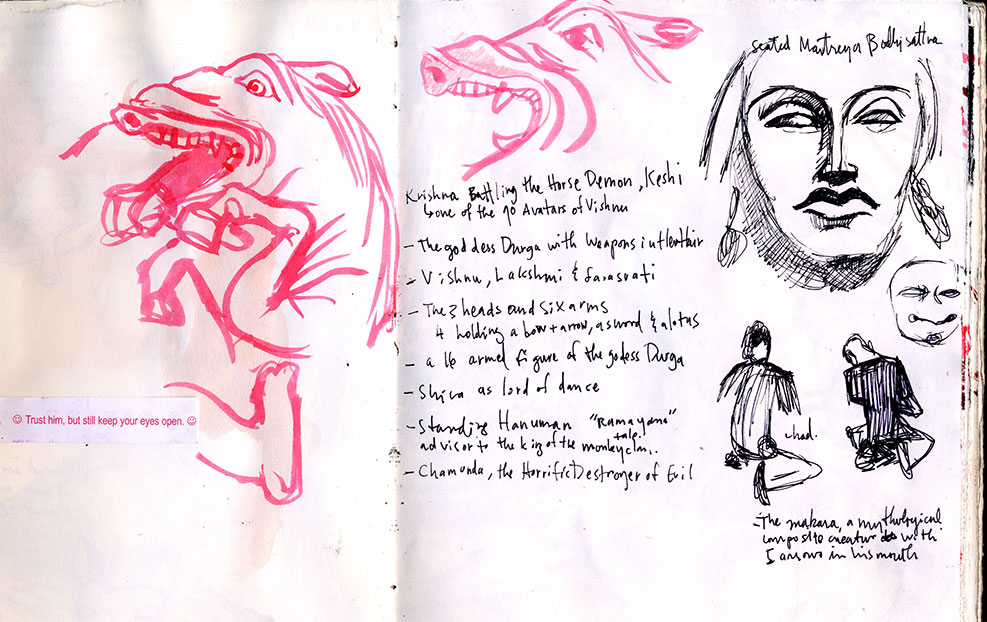 ☺ Trust him, but still keep your eyes open. ☺
Krishna Battling the Horse Demon, Keshi
↳ one of the 10 Avatars of Vishnu
- The goddess Durga with weapons in
- Vishnu, Lakshmi & Sarasvati
- The 3 heads and six arms
4 holding a bow + arrow, a sword & a lotus
- a 16 armed figure of the godess Durga
- Shiva as lord of dance
- Standing Hanuman "Ramayana"
tale.
advisor to the king of the monkey clan.
- Chamunda, the Horrific Destroyer of Evil
seated Maitreya Bodhisattva
- The makara, a mythological
composite creature with
5 arrows in his mouth